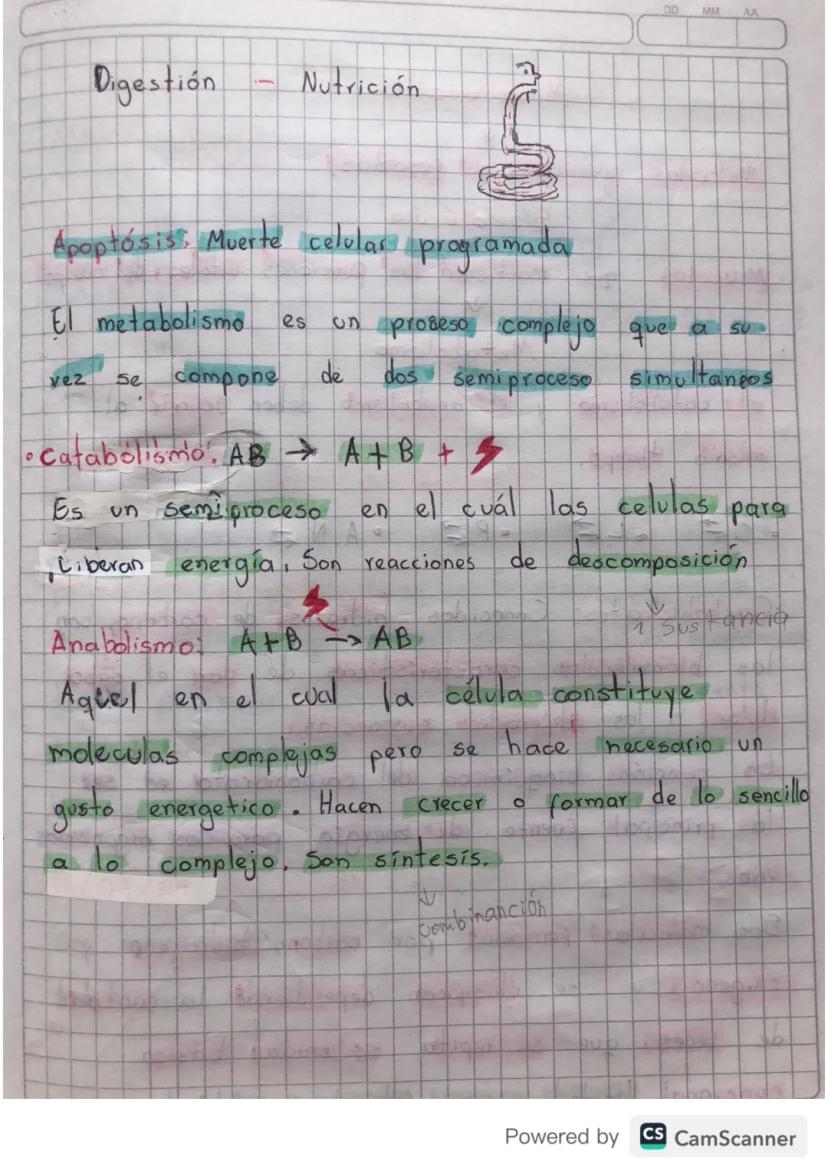 DD MM AA
Digestión - Nutrición
Apoptósis: Muerte celular programada
El metabolismo es un proseso complejo que a su
vez se compone de dos semiproceso simultaneos
• Catabolismo: AB → A + B +
Es un semiproceso en el cuál las celulas para
Liberan energía. Son reacciones de descomposición
↓
1 Sustancia
Anabolismo: A + B → AB
Aquel en el cual la célula constituye
moleculas complejas pero se hace necesario un
gusto energetico. Hacen crecer o formar de lo sencillo
a lo complejo. Son síntesis.
↓
combinanción
Powered by CS CamScanner